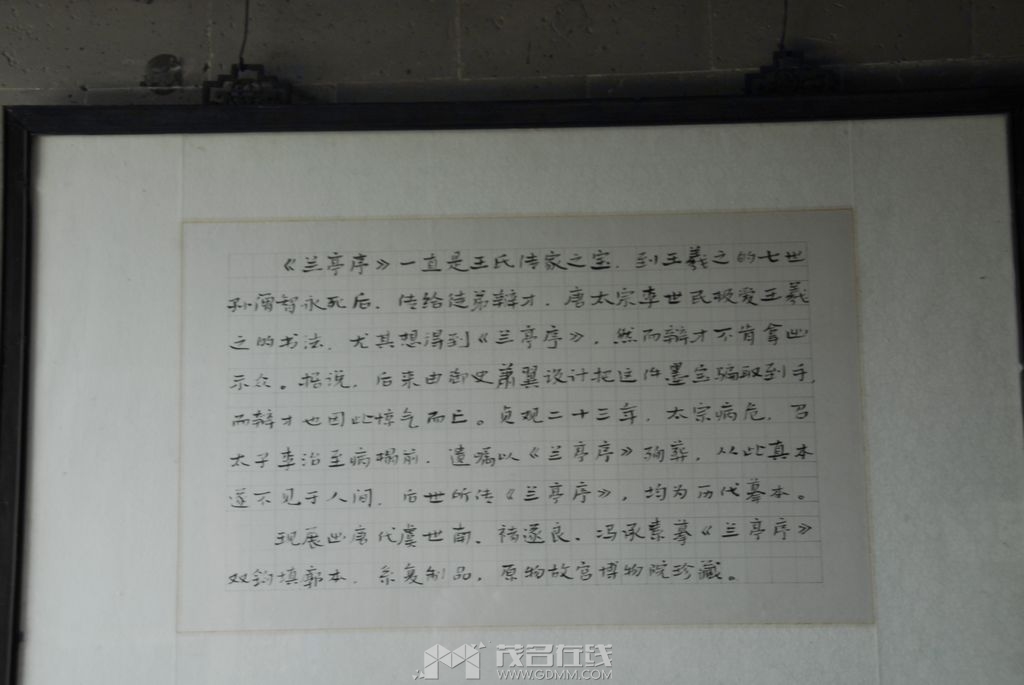 《兰亭序》一直是王氏传家之宝，到王羲之的七世
孙僧智永死后，传给徒弟辩才，唐太宗李世民极爱王羲
之的书法，尤其想得到《兰亭序》，然而辩才不肯拿出
示众。据说，后来由御史萧翼设计把这件墨宝骗取到手，
而辩才也因此惊气而亡。贞观二十三年，太宗病危，召
太子李治至病榻前，遗嘱以《兰亭序》殉葬，从此真本
遂不见于人间，后世所传《兰亭序》，均为历代摹本。
现展出唐代虞世南、褚遂良、冯承素摹《兰亭序》
双钩填郭本，系复制品，原物故宫博物院珍藏。
茂名在线
WWW.GDMM.COM